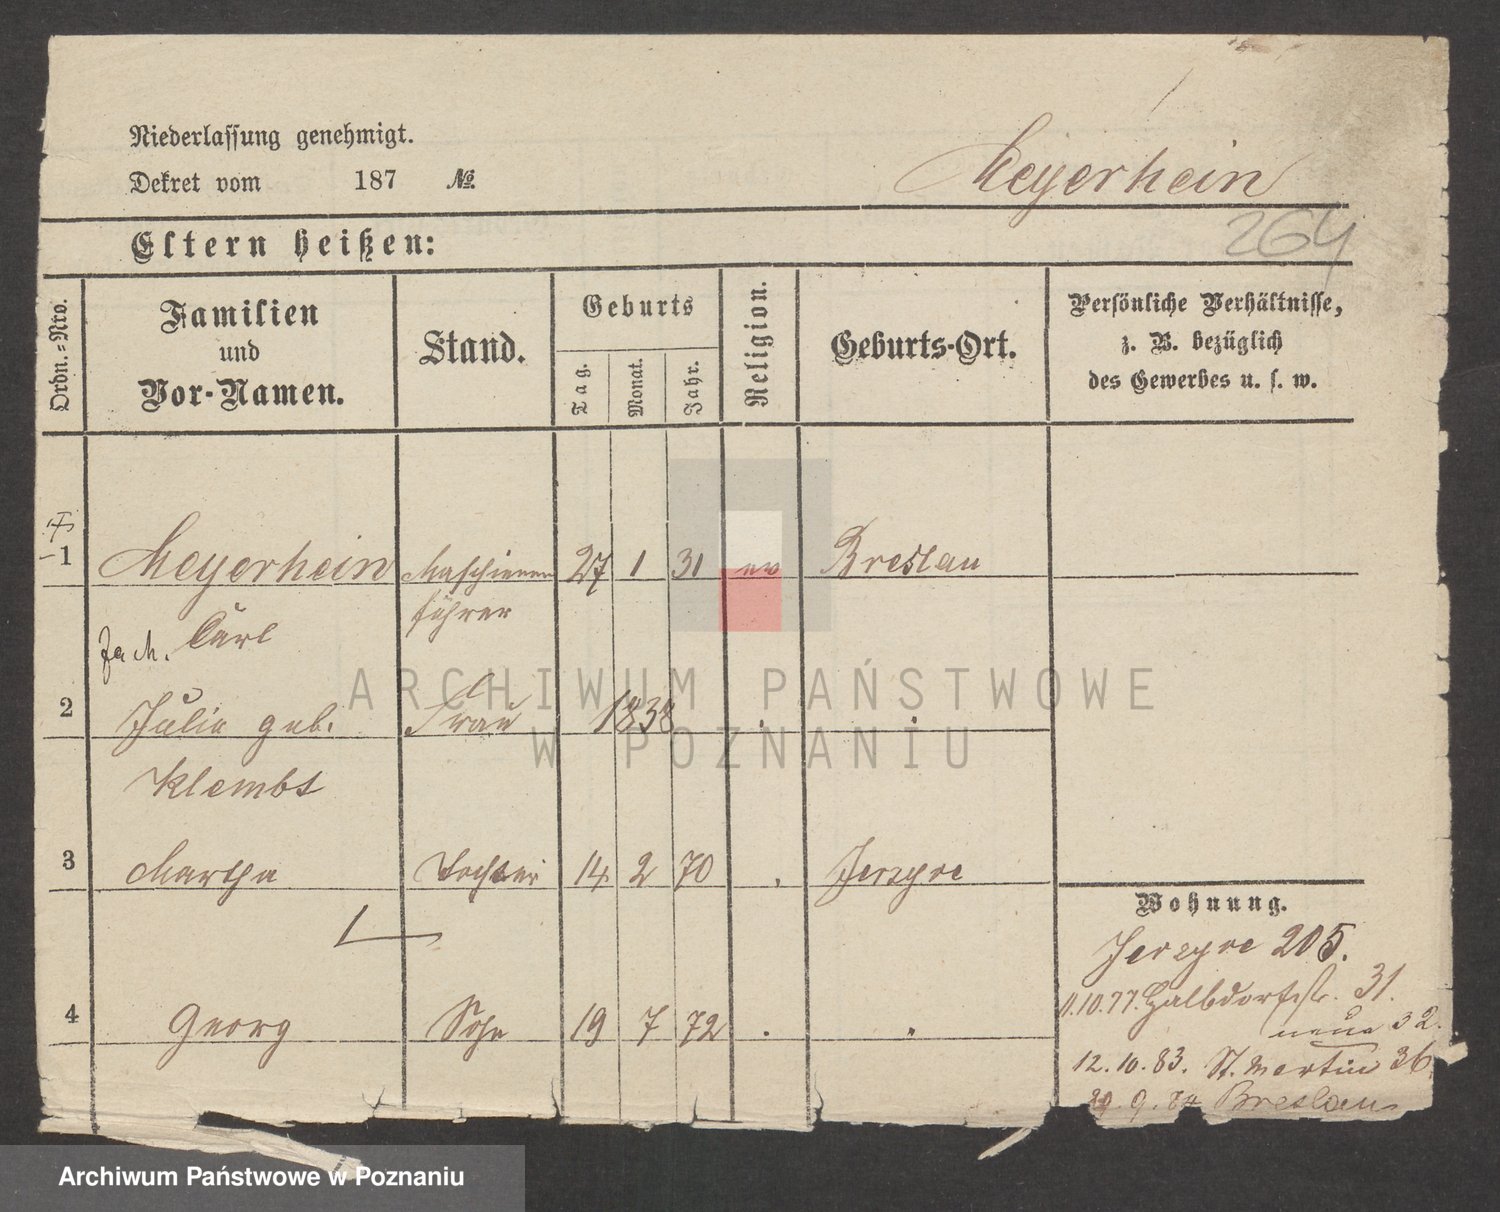 Niederlassung genehmigt.
Dekret vom 187 №
Meyerhein
264
Eltern heißen:
Ordn.-Nro.
Familien
und
Vor-Namen.
Stand.
Geburts
Tag.
Monat.
Jahr.
Religion.
Geburts-Ort.
Persönliche Verhältnisse,
z. B. bezüglich
des Gewerbes u. s. w.
1 Meyerhein Maschienen 27 1 31 ev Breslau
Carl führer
2 Julie geb. Frau 1838
Klembt
3 Martha Tochter 14 2 70 Jerzyce
4 Georg Sohn 19 7 72
Wohnung.
Jerzyce 205.
11.10.77. Halbdorfstr. 31.
neue 32.
12.10.83. St. Martin 36.
29.9.84 Breslau
ARCHIWUM PAŃSTWOWE
W POZNANIU
Archiwum Państwowe w Poznaniu